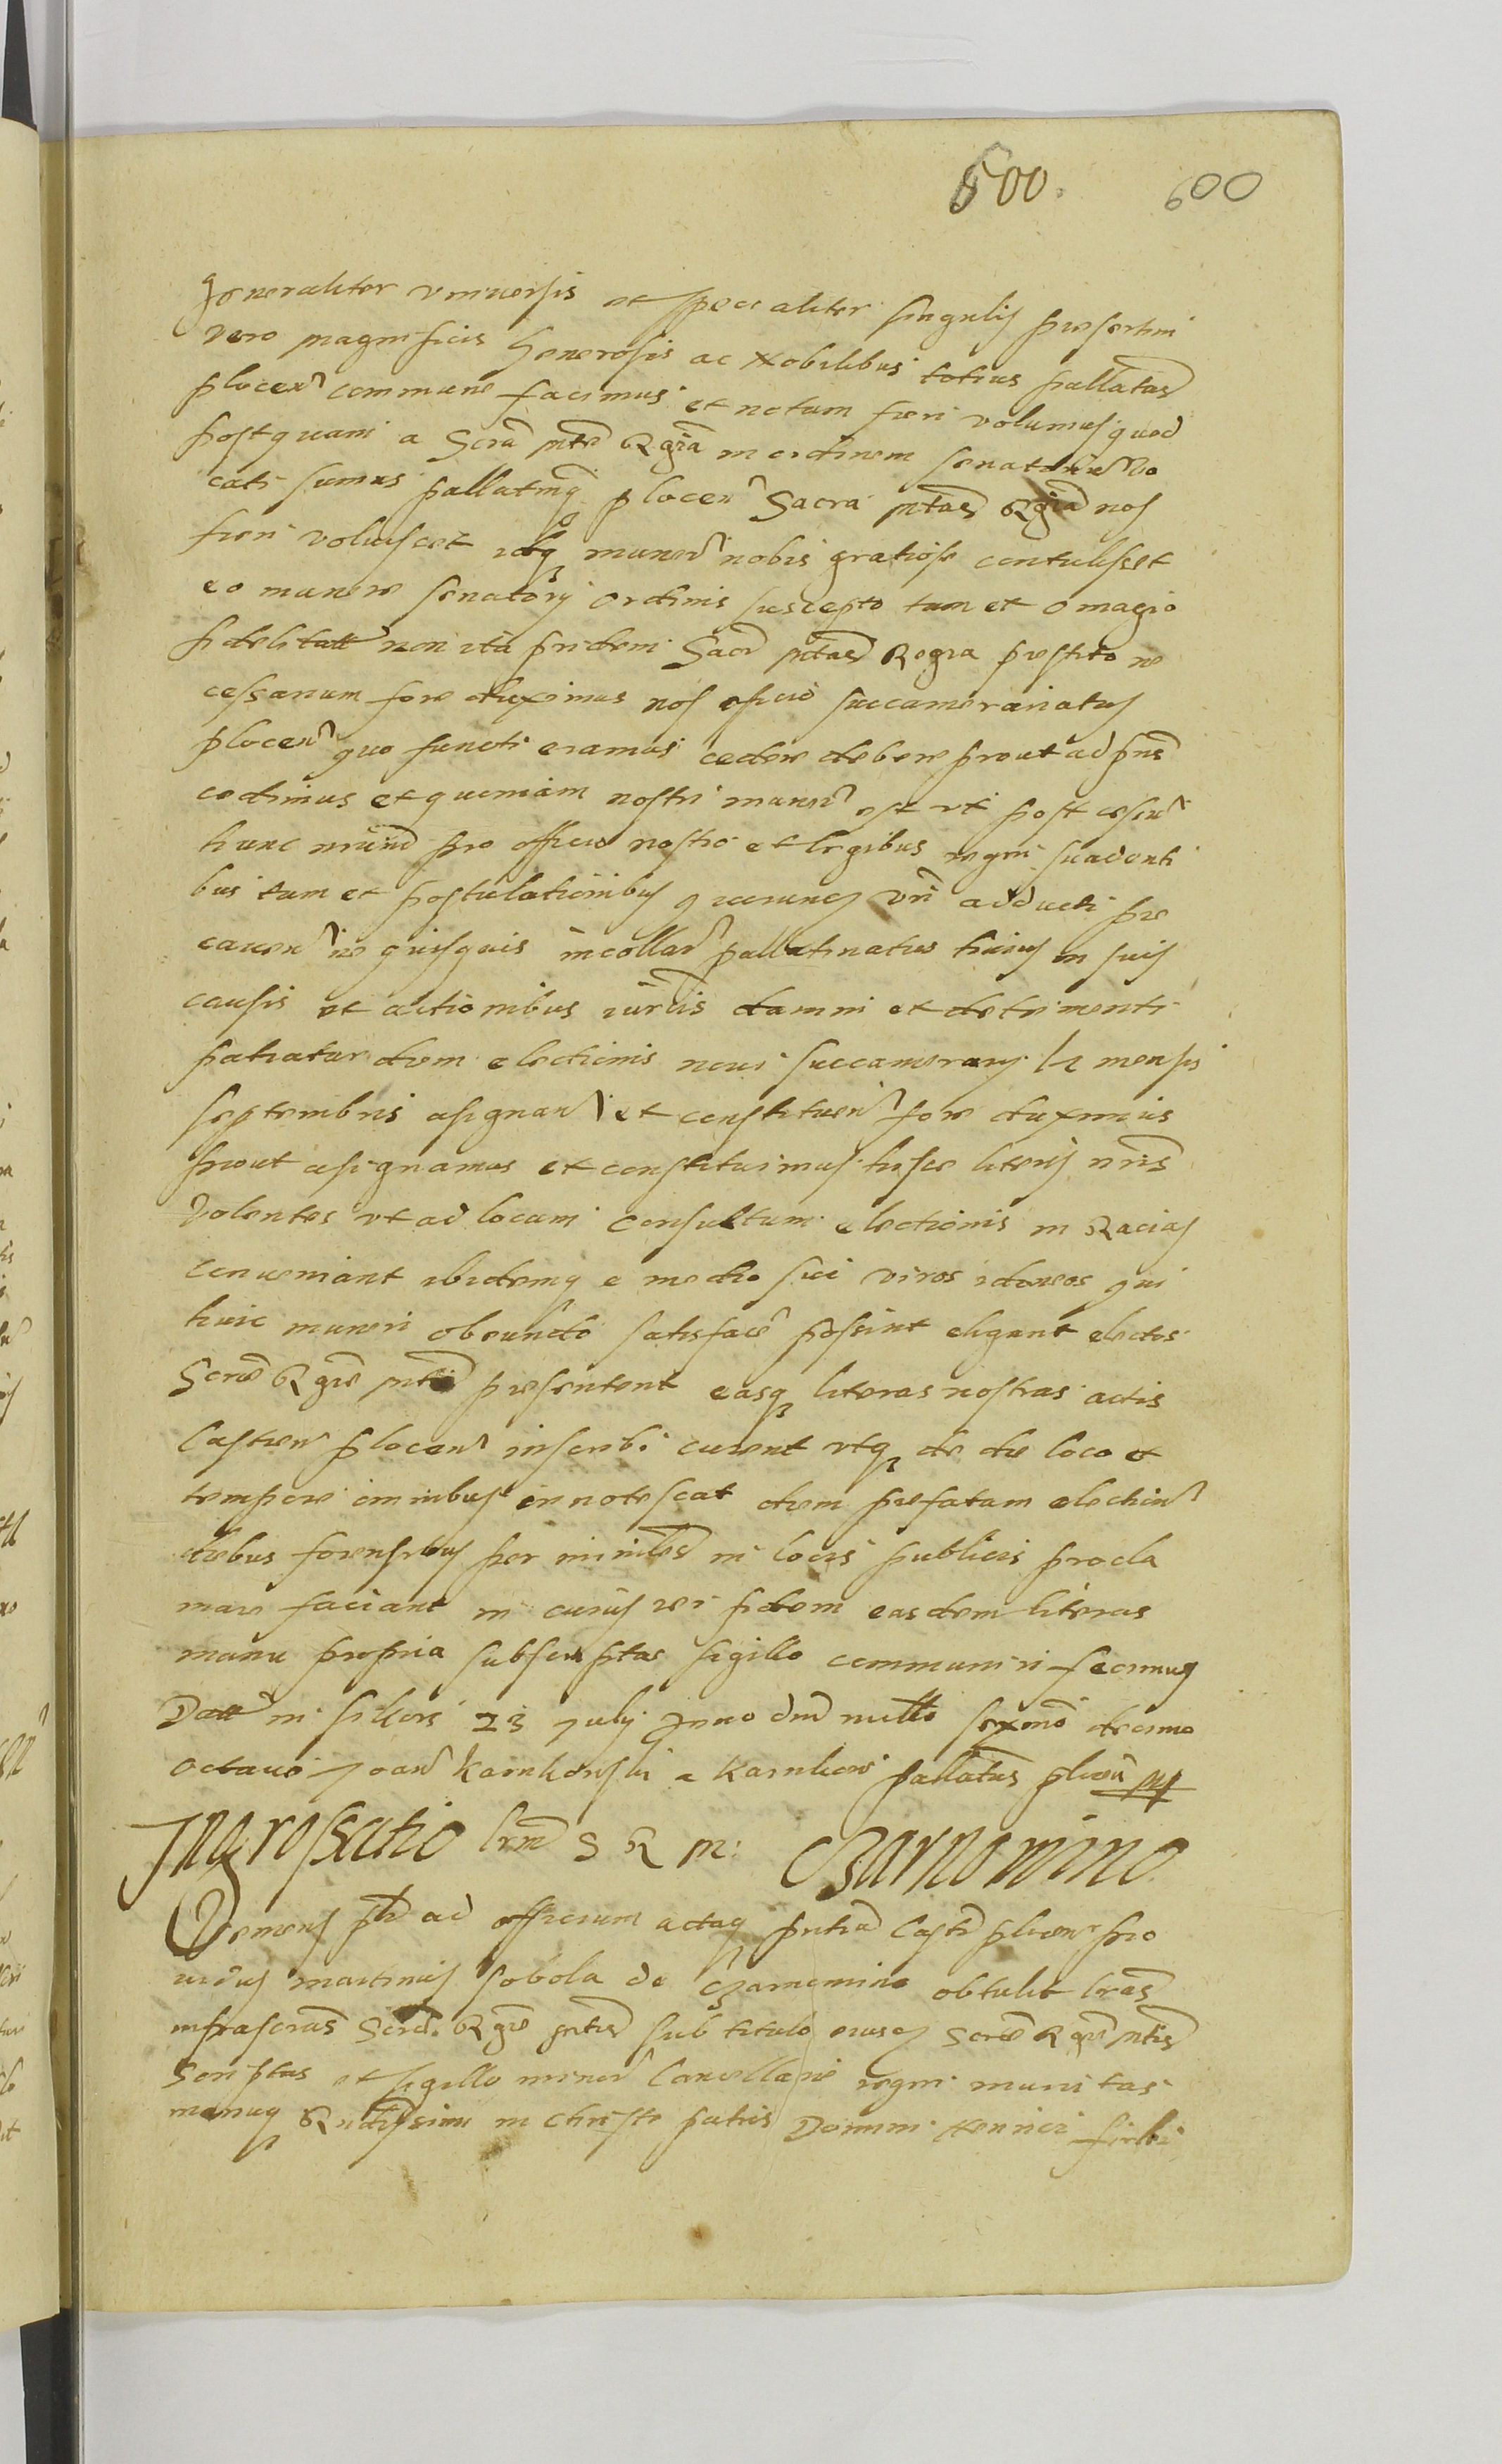 600. 600
generaliter universis et specialiter singulis presertim
vero magnificis Generosis ac Nobilibus totius pallatus
plocen commune facimus et notum fieri volumus quod
postquam a Scra mte Rgia in ordinem senatorum vo
cati sumus pallatinq plocen Sacra mtas Rgia nos
fieri voluisset idq muner nobis gratiose contulisset
eo munere senatory Ordinis suscepto tum et omagio
fidelitatt non ita pridem Sacr mtas Regia prestito ne
cessarium fore duximus nos officio succamerariatus
plocen quo functi eramus cedere debere prout ad pns
cedimus et quoniam nostri muner est ut post
hunc pro officio nostro et legibus regni suadenti
bus tum et postulationibus vri adducti pre
caven ne quisquis incollar pallatinatus huius in suis
causis et actionibus iurdis damni et detrimenti
patiatur diem electionis novi succamerary 12 mensis
septembris asignan et constituen fore duximus
prout asignamus et constituimus hisce literis nris
Volentes ut ad locum consultum electionis in Raciaz
conveniant ibidemq e medio sui viros idoneos qui
huic muneri obeundo satisface possint eligant electos
Scrae Rgie mti presentent easq literas nostras actis
Castren plocen inscribi curent utq de die loco et
tempore omnibus innotescat diem prefatam election
diebus forensibus per minilem in locis publicis procla
mare faciant in cuius rei fidem easdem literas
manu propria subscriptas sigillo communiri fecimus
Datt in 23 July Anno dni millo sexmo decimo
octavo Joan Karnkowski a Karnkow pallatus plocen mp
Ingrossatio lrar S R M: Czarnomino
Veniens ad officium actaq pntia Castr plocen pro
vidus martinus Sobola de Czarnomino obtulit lras
infrascras Scrae Rgie mtis sub titulo eiusq Scrae Rgie mtis
Scriptas et sigillo minor Cancellarie regni munitas
manuq Rndissimi in christo patris Domini Henrici firlei